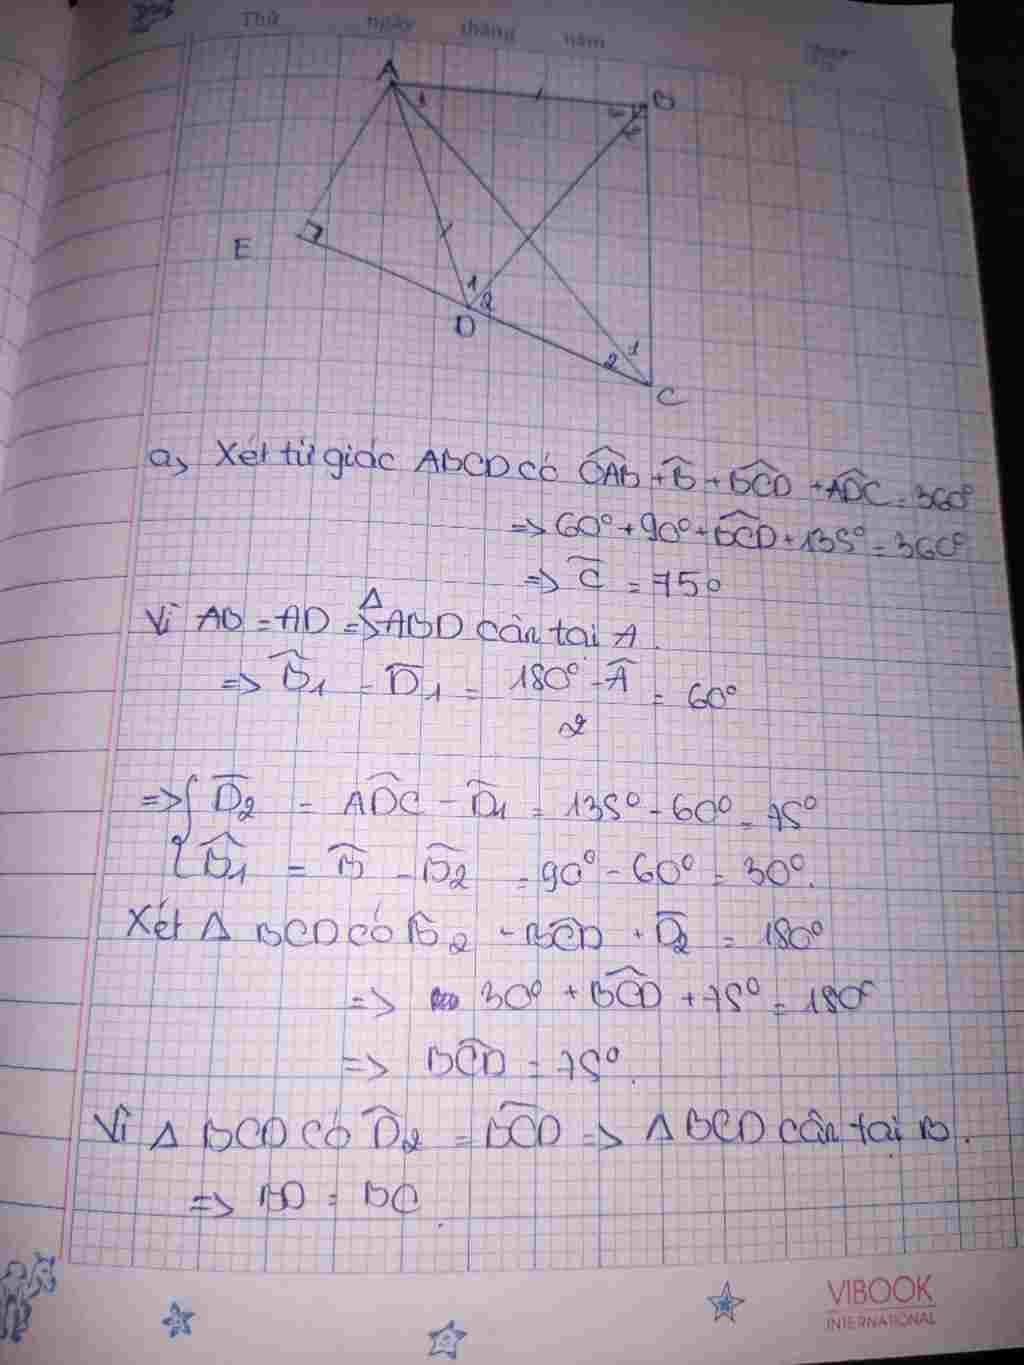 Thứ ngày tháng năm
A
1
B
E
1
2
D
1
2
C
a, Xét tứ giác ABCD có DAB + B + BCD + ADC = 360°
=> 60° + 90° + BCD + 135° = 360°
=> C = 75°
Vì AB = AD => Δ ABD cân tại A.
=> B1 = D1 = (180° - A) / 2 = 60°
=> { D2 = ADC - D1 = 135° - 60° = 75°
{ B1 = B - B2 = 90° - 60° = 30°.
Xét Δ BCD có B2 + BCD + D2 = 180°
=> 30° + BCD + 75° = 180°
=> BCD = 75°.
Vì Δ BCD có D2 = BCD => Δ BCD cân tại B.
=> BD = BC.
VIBOOK
INTERNATIONAL